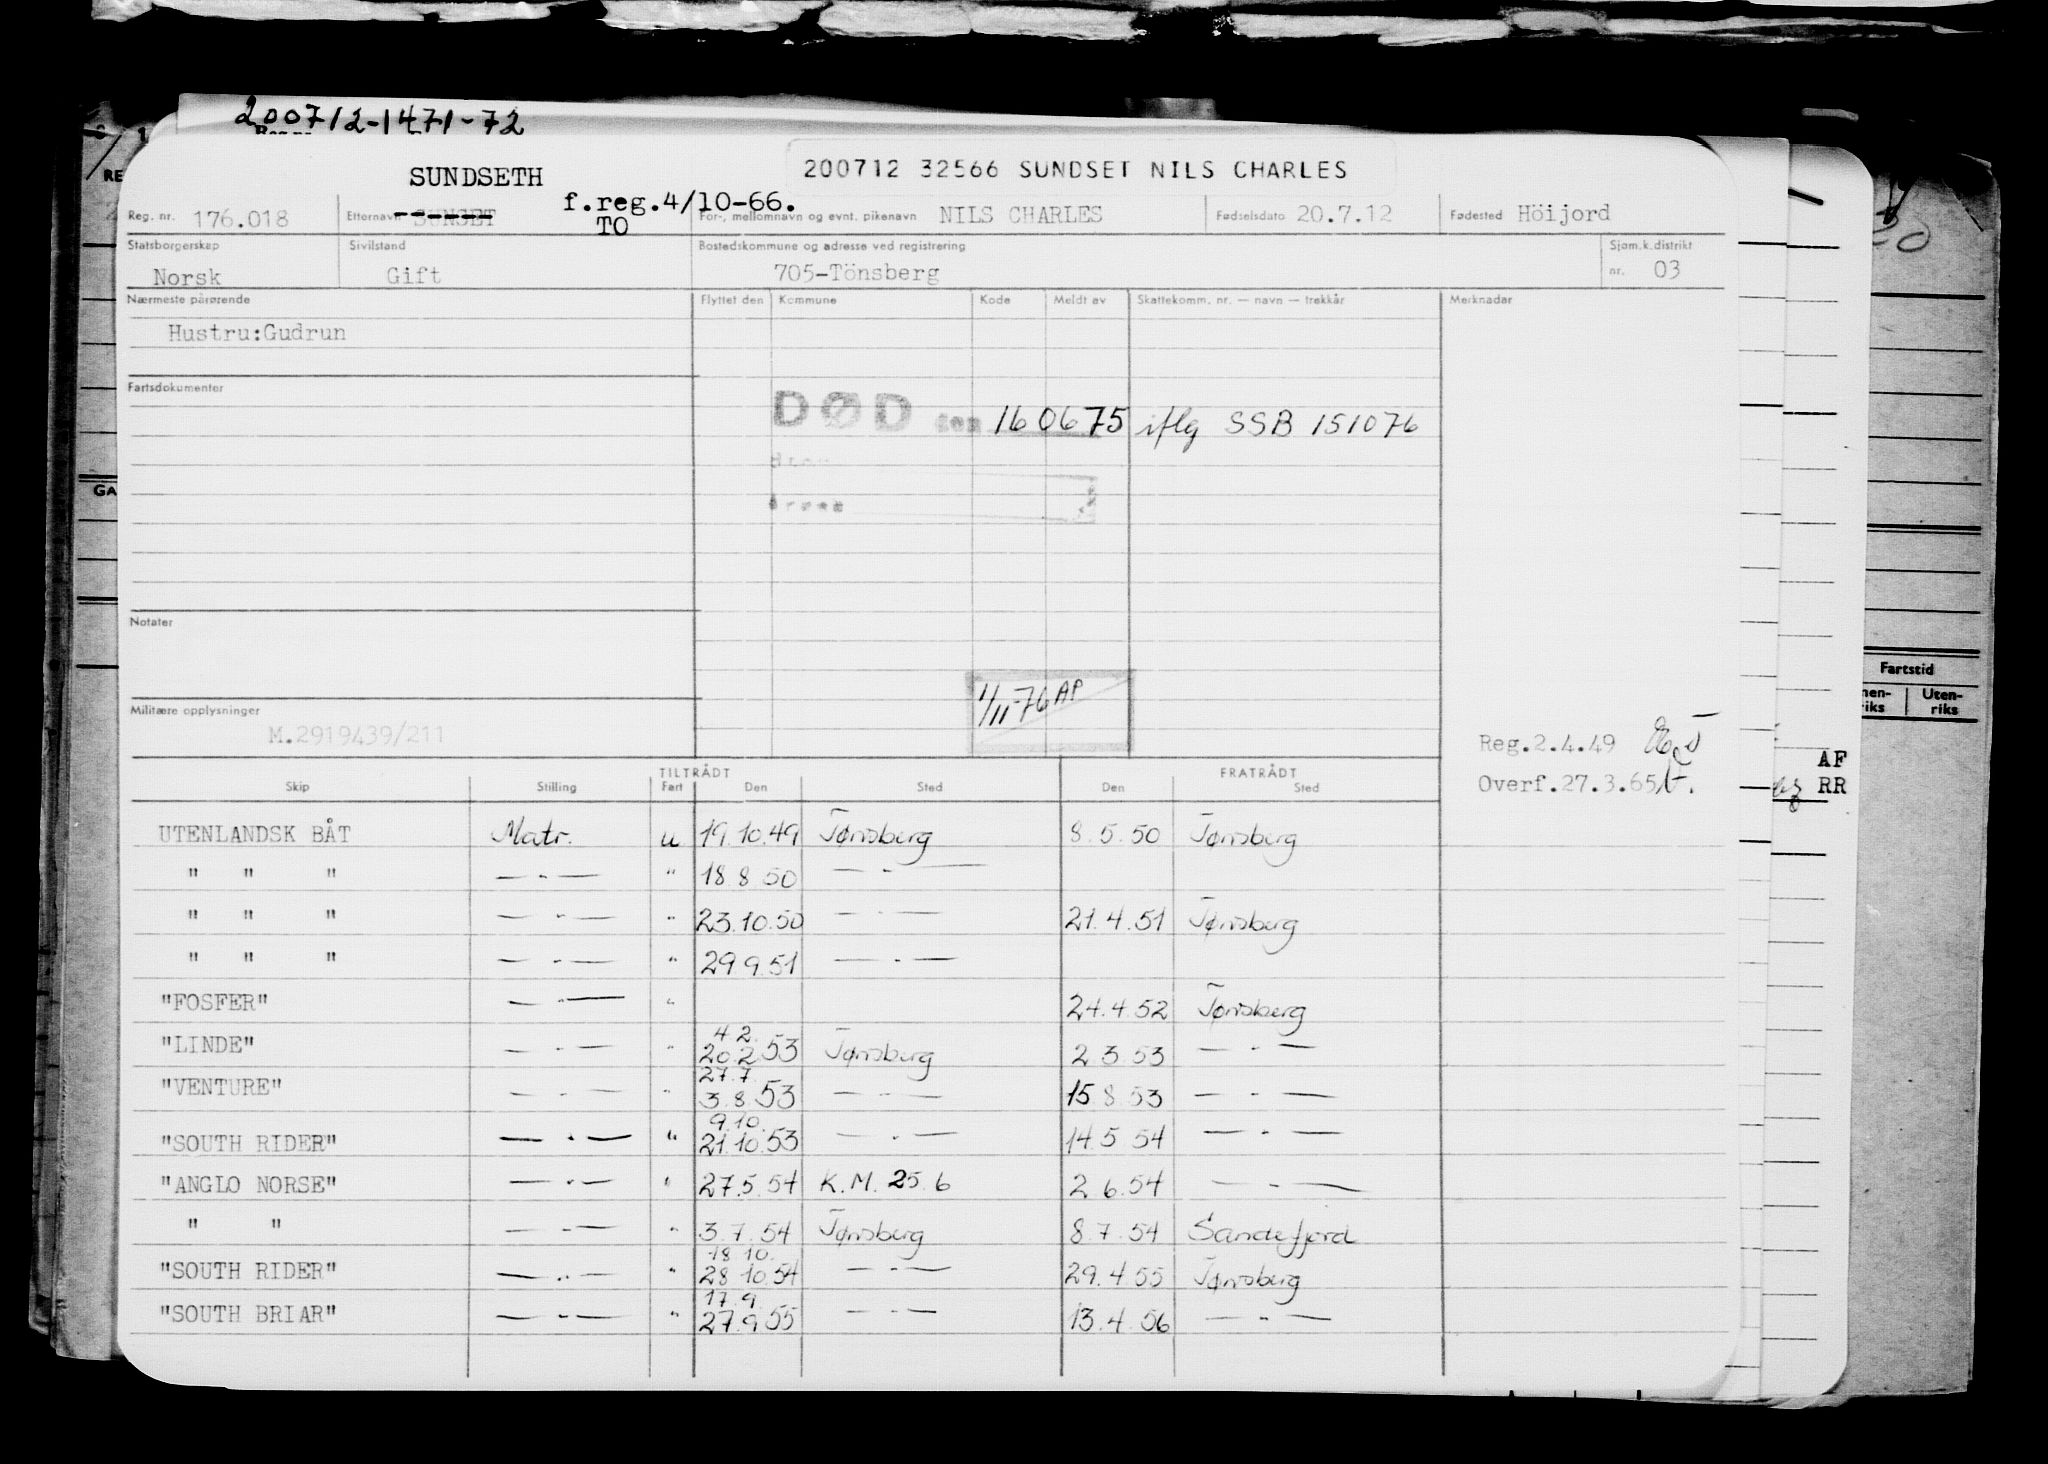 200712-1471-72
200712 32566 SUNDSET NILS CHARLES
SUNDSETH
f.reg.4/10-66.
TO
Reg. nr. 176.018 Etternavn SUNSET For-, mellomnavn og evnt. pikenavn NILS CHARLES Fødselsdato 20.7.12 Fødested Höijord
Statsborgerskap Sivilstand Bostedskommune og adresse ved registrering Sjøm.k.distrikt
Norsk Gift 705-Tönsberg nr. 03
Nærmeste pårørende Flyttet den Kommune Kode Meldt av Skattekomm. nr. — navn — trekkår Merknader
Hustru:Gudrun
Fartsdokumenter
DØD den 160675 iflg SSB 151076
Notater
1/11-76 AP
Militære opplysninger
M.2919439/211
Reg.2.4.49
Overf.27.3.65
TILTRÅDT FRATRÅDT
Skip Stilling Fart Den Sted Den Sted
UTENLANDSK BÅT Matr. u 19.10.49 Tønsberg 8.5.50 Tønsberg
" " " — " — " 18.8.50 — " —
" " " — " — " 23.10.50 — " — 21.4.51 Tønsberg
" " " — " — " 29.9.51 — " —
"FOSFER" — " — " 24.4.52 Tønsberg
4.2.
"LINDE" — " — " 20.2.53 Tønsberg 2.3.53 — " —
27.7.
"VENTURE" — " — " 3.8.53 — " — 15.8.53 — " —
9.10.
"SOUTH RIDER" — " — " 21.10.53 — " — 14.5.54 — " —
"ANGLO NORSE" — " — " 27.5.54 K.M. 25.6 2.6.54 — " —
" " — " — " 3.7.54 Tønsberg 8.7.54 Sandefjord
18.10.
"SOUTH RIDER" — " — " 28.10.54 — " — 29.4.55 Tønsberg
17.9.
"SOUTH BRIAR" — " — " 27.9.55 — " — 13.4.56 — " —
RE
GA
Fartstid
Uten-
riks
AF
RR